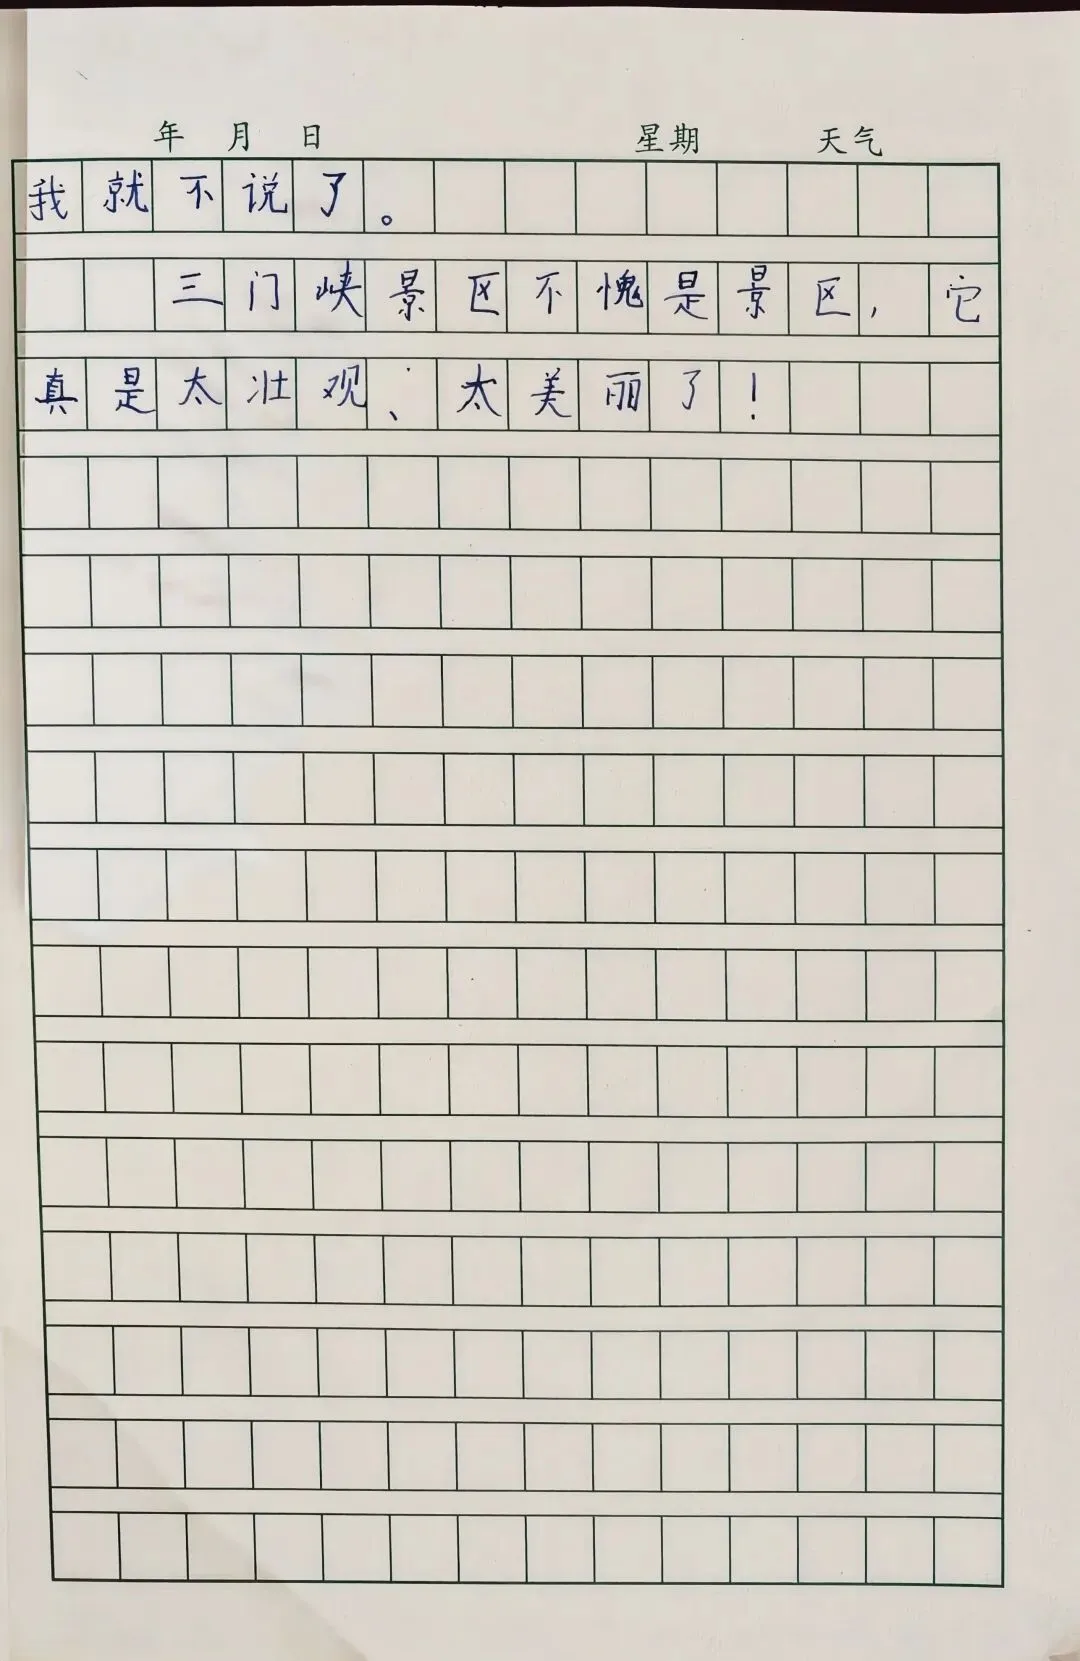 年 月 日 星期 天气
我就不说了。
三门峡景区不愧是景区,它
真是太壮观、太美丽了!